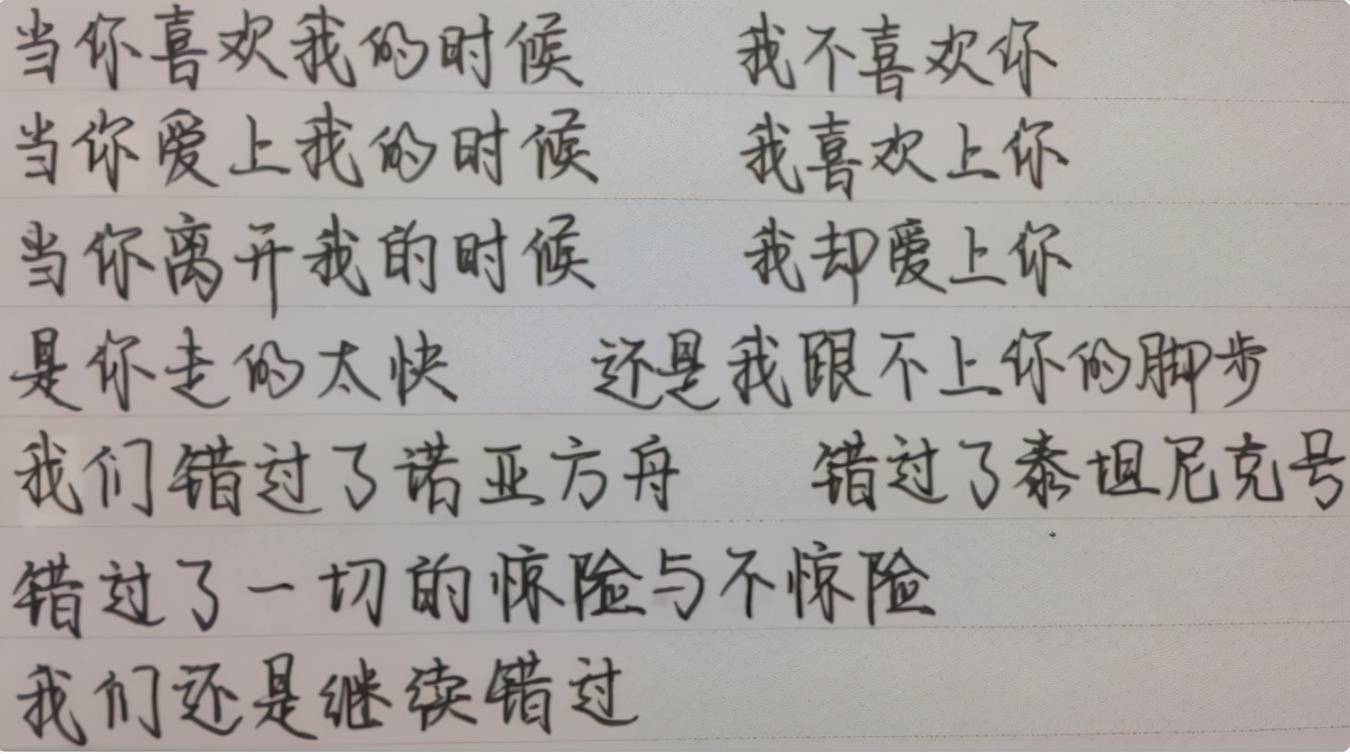 当你喜欢我的时候 我不喜欢你
当你爱上我的时候 我喜欢上你
当你离开我的时候 我却爱上你
是你走的太快 还是我跟不上你的脚步
我们错过了诺亚方舟 错过了泰坦尼克号
错过了一切的惊险与不惊险
我们还是继续错过